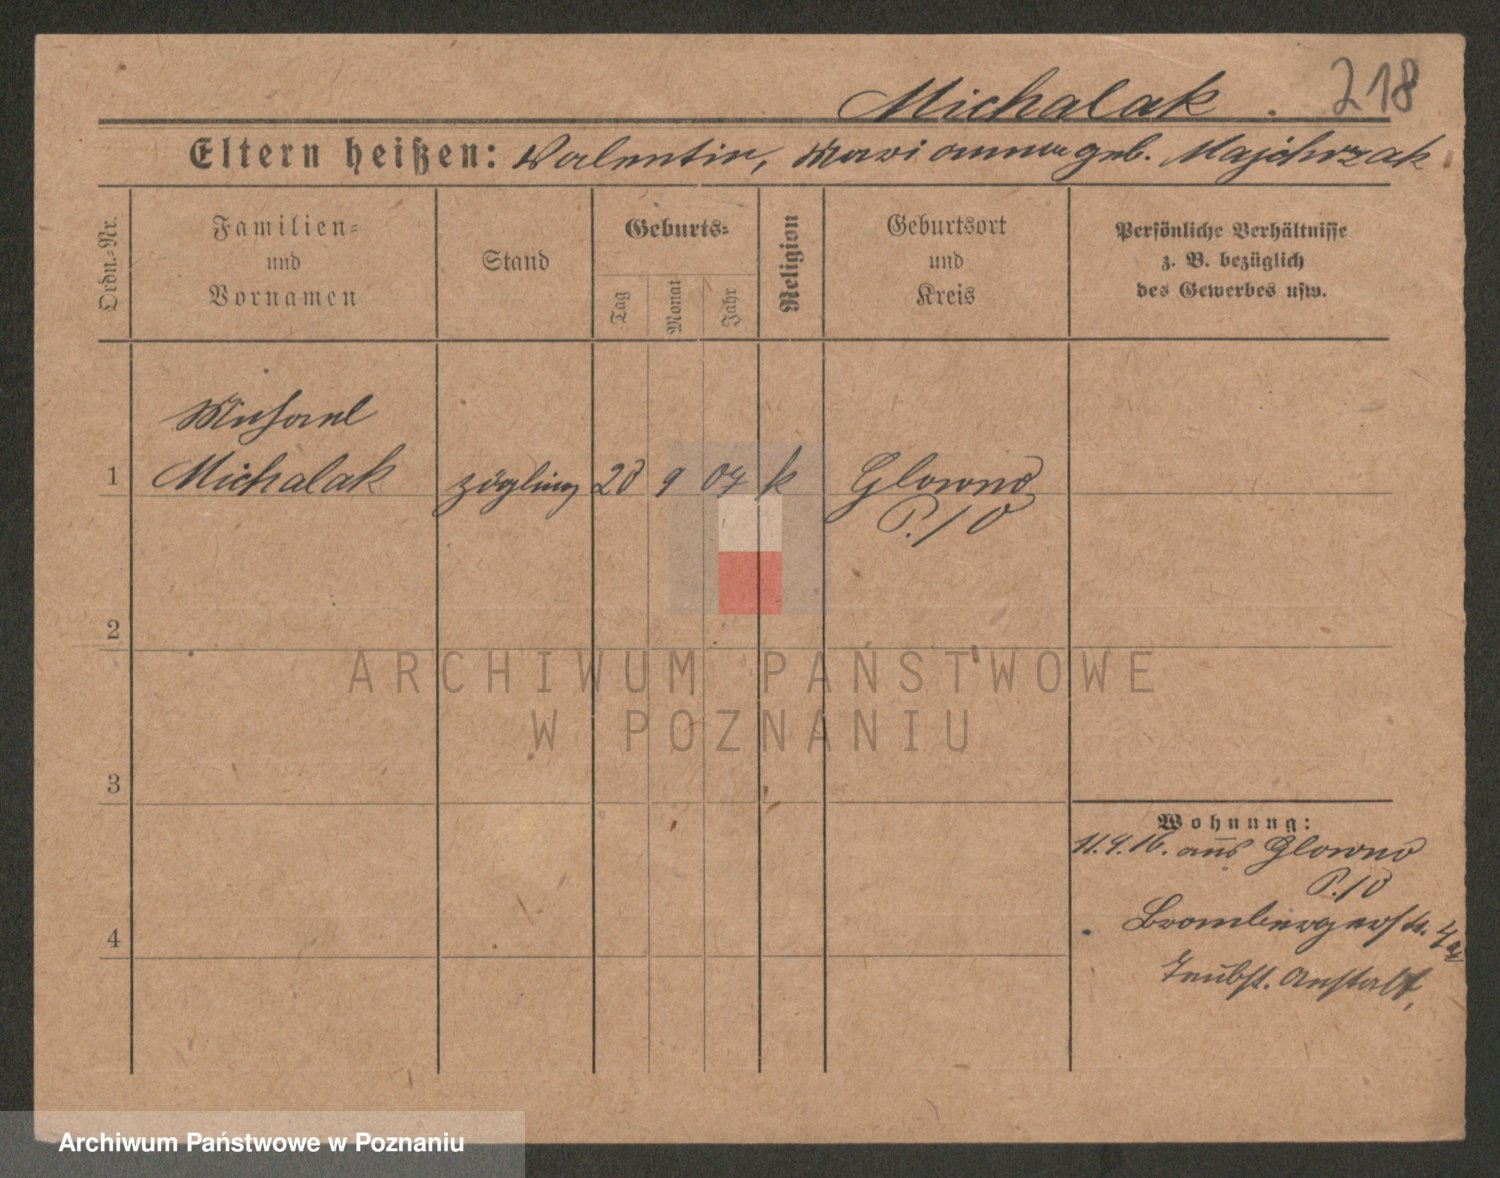 218
Michalak.
Eltern heißen: Valentin, Marianna geb. Majchrzak
Ordn.-Nr.
Familien-
und
Vornamen
Stand
Geburts-
Tag
Monat
Jahr
Religion
Geburtsort
und
Kreis
Persönliche Verhältnisse
z. B. bezüglich
des Gewerbes usw.
Michael
1 Michalak Zögling 28 9 04 k Glowno
P./O
2
3
4
Wohnung:
11.9.16. aus Glowno
P./O
Brombergerstr. 4a
Taubst. Anstalt,
ARCHIWUM PAŃSTWOWE
W POZNANIU
Archiwum Państwowe w Poznaniu